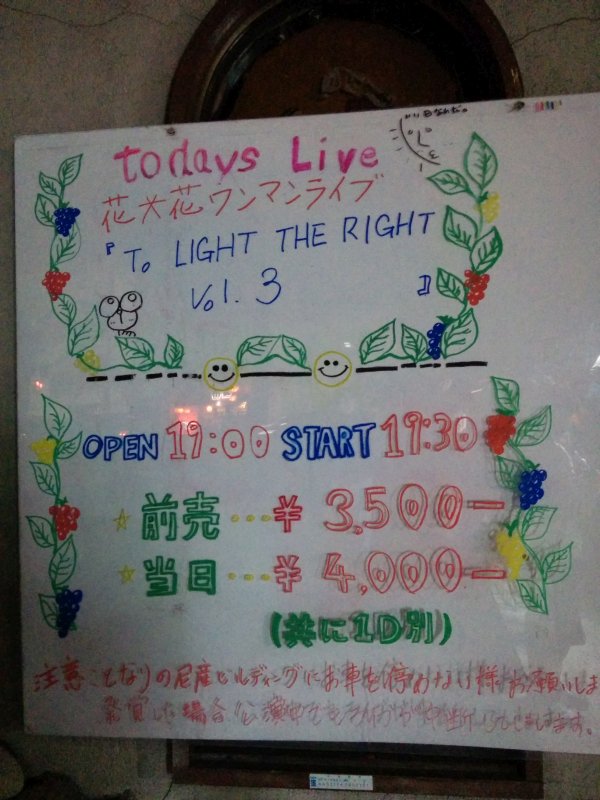 todays Live
花大花ワンマンライブ
『To LIGHT THE RIGHT
Vol. 3 』
OPEN 19:00 START 19:30
☆ 前売 … ¥ 3,500ー
☆ 当日 … ¥ 4,000ー
(共に1D別)
注意 となりの尼産ビルディングにお車を停めない様お願いしま
場合 公演中でも